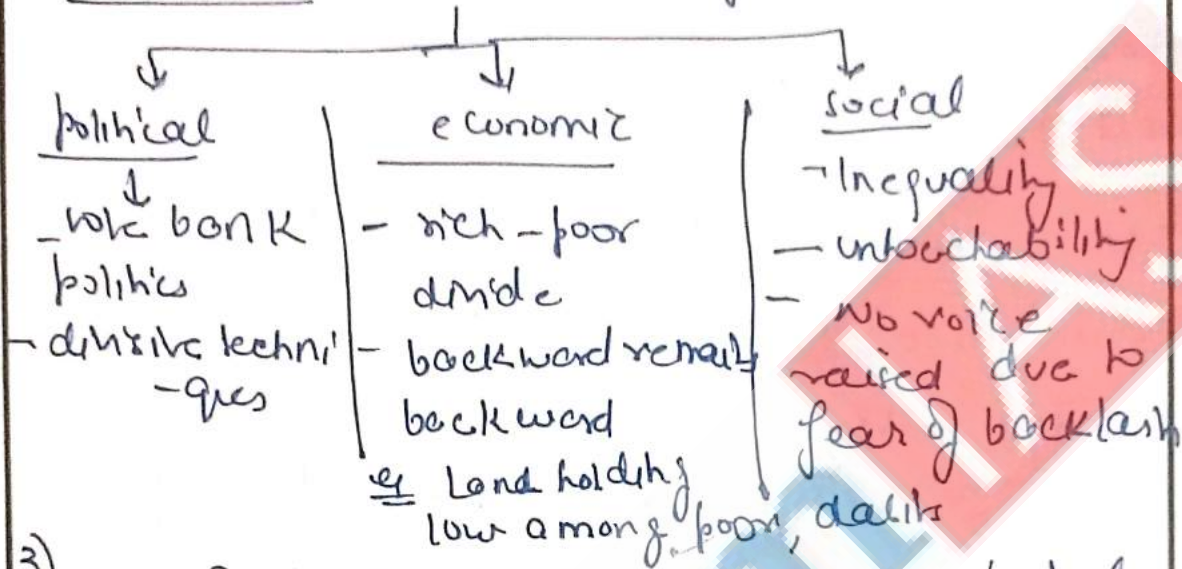 political
- vote bank
politics
- divisive techni
-ques
economic
- rich-poor
divide
- backward remain
backward
eg Land holding
low among poor, dalits
social
- Inequality
- untouchability
- No voice
raised due to
fear of backlash
3)